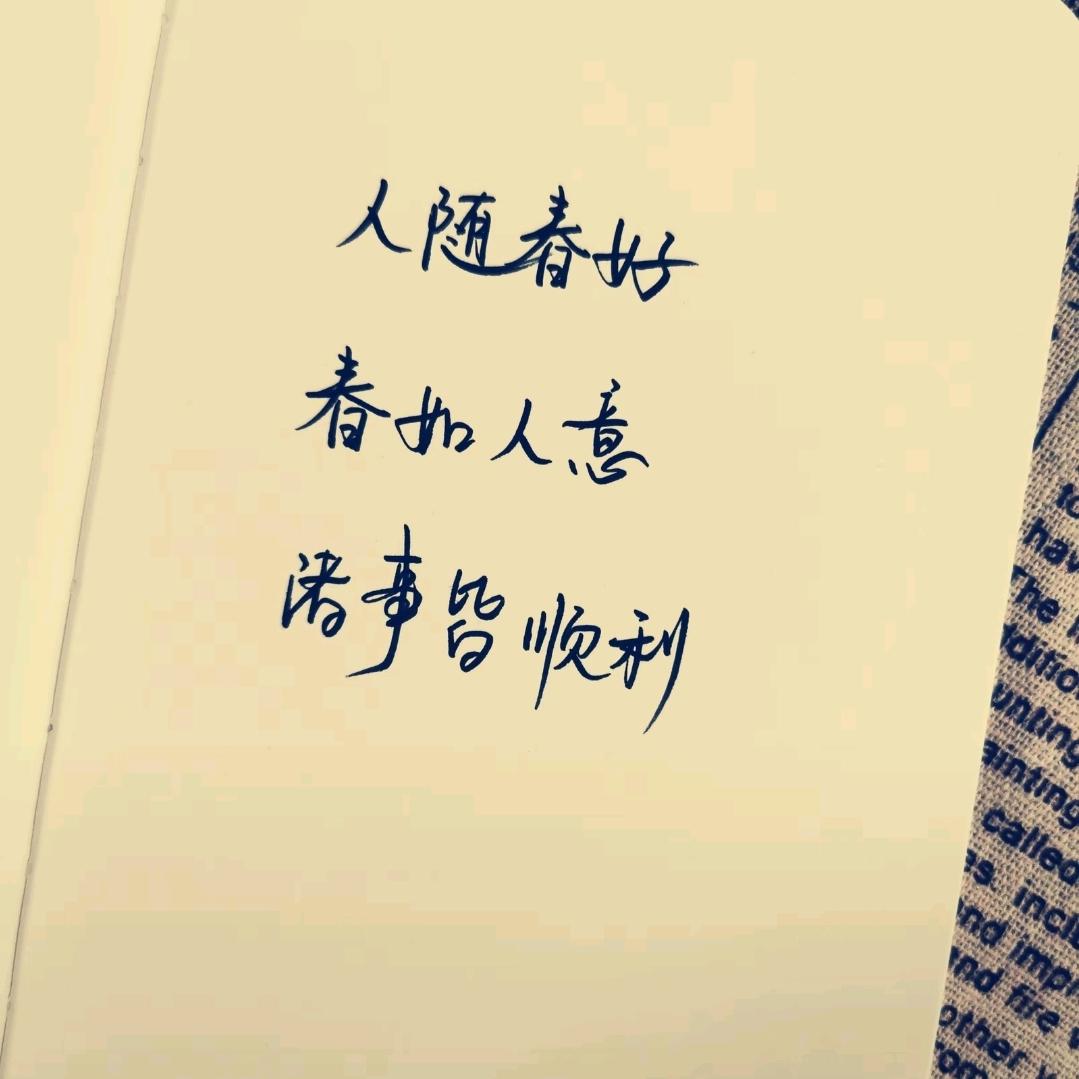 人随春好
春如人意
诸事皆顺利
to
hav
The
dditio
unting
ainting
called
es inclu
nd impr
nd fire
other
om